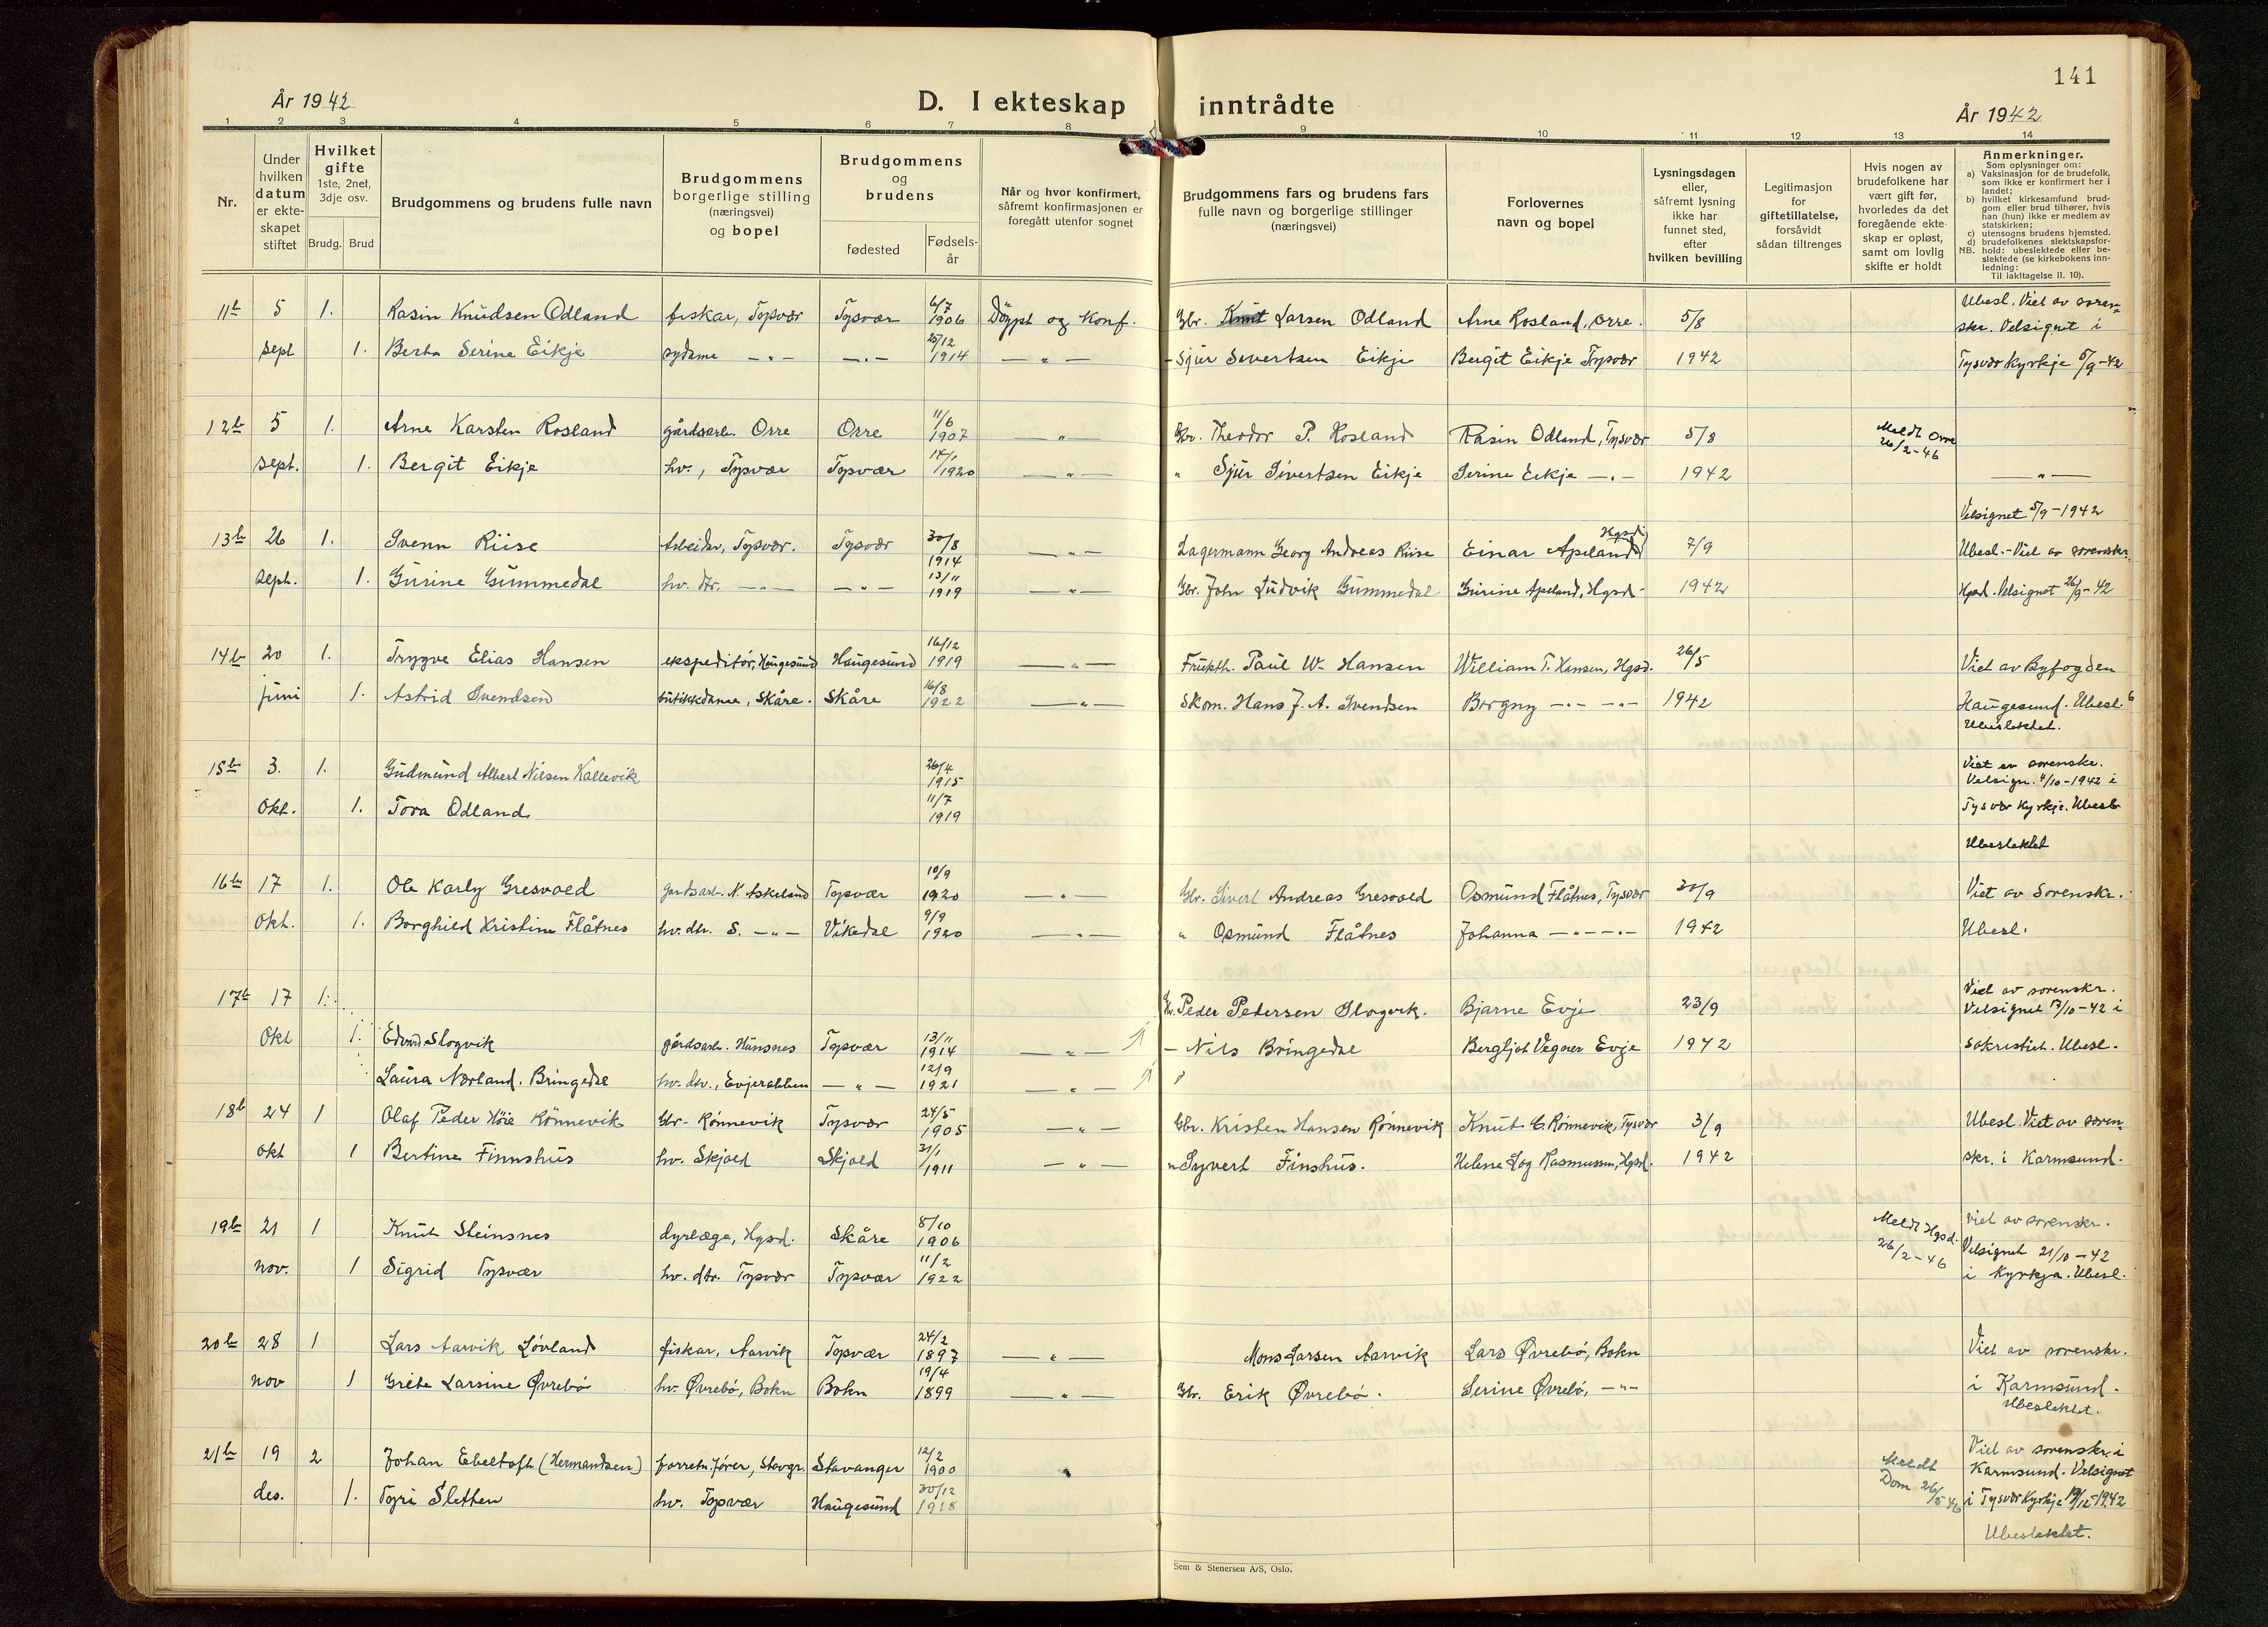 141
År 1942
D. I ekteskap inntrådte
År 1942
1 2 3 4 5 6 7 8 9 10 11 12 13 14
Nr.
Under hvilken datum er ekteskapet stiftet
Hvilket gifte 1ste, 2net, 3dje osv.
Brudg. Brud
Brudgommens og brudens fulle navn
Brudgommens borgerlige stilling (næringsvei) og bopel
Brudgommens og brudens
fødested
Fødsels-år
Når og hvor konfirmert, såfremt konfirmasjonen er foregått utenfor sognet
Brudgommens fars og brudens fars fulle navn og borgerlige stillinger (næringsvei)
Forlovernes navn og bopel
Lysningsdagen eller, såfremt lysning ikke har funnet sted, efter hvilken bevilling
Legitimasjon for giftetillatelse, forsåvidt sådan tiltrenges
Hvis nogen av brudefolkene har vært gift før, hvorledes da det foregående ekteskap er opløst, samt om lovlig skifte er holdt
Anmerkninger.
Som oplysninger om:
a) Vaksinasjon for de brudefolk, som ikke er konfirmert her i landet;
b) hvilket kirkesamfund brudgom eller brud tilhører, hvis han (hun) ikke er medlem av statskirken;
c) utensogns brudens hjemsted.
d) brudefolkenes slektskapsforhold: ubeslektede eller beslektede (se kirkebokens innledning:
NB. Til iakttagelse II. 10).
11b 5 1. Rasin Knudsen Odland fiskar, Tysvær Tysvær 6/7 1906 Døypt og Konf. Gbr. Knut Larsen Odland Arne Rosland, Orre. 5/8 Ubesl. Viet av soren-
skr. Velsignet i
sept 1. Berta Serine Eikje sydame —"— —"— 25/12 1914 —"— - Sjur Sivertsen Eikje Bergit Eikje Tysvær 1942 Tysvær Kyrkje 5/9-42
12b 5 1. Arne Karsten Rosland gårdsarb. Orre Orre 11/6 1907 —"— Gbr. Theodor P. Rosland Rasin Odland, Tysvær 5/8 Meldt Orre 26/2-46
sept. 1. Bergit Eikje hv., Tysvær Tysvær 14/1 1920 —"— " Sjur Sivertsen Eikje Serine Eikje —"— 1942 —"—
Velsignet 5/9-1942
13b 26 1. Svenn Riise Arbeider, Tysvær. Tysvær 30/8 1914 —"— Lagermann Georg Andreas Riise Einar Apeland Hgsd. 7/9 Ubesl. - Viet av sorenskr.
sept. 1. Gurine Gummedal hv. dtr. —"— —"— 13/11 1919 —"— Gbr. John Ludvik Gummedal Gurine Apeland, Hgsd. 1942 Hgsd. Velsignet 26/9-42
14b 20 1. Trygve Elias Hansen ekspeditør, Haugesund Haugesund 16/12 1919 —"— Frukth. Paul W. Hansen William T. Hansen, Hgsd. 26/5 Viet av Byfogden
juni 1. Astrid Svendsen butikkdame, Skåre. Skåre 16/8 1922 —"— Skom. Hans J. A. Svendsen Borgny —"— —"— 1942 Haugesund. Ubesl.
Ubeslektet.
15b 3. 1. Gudmund Albert Nilsen Kallevik 26/4 1915 Viet av sorenskr.
Velsign. 4/10-1942 i
okt. 1. Tora Odland 11/7 1919 Tysvær Kyrkje. Ubesl.
Ubeslektet
16b 17 1. Ole Karly Gresvold gardsarb. N. Askeland Tysvær 10/9 1920 —"— Gbr. Sivert Andreas Gresvold Osmund Flåtnes, Tysvær 30/9 Viet av Sorenskr.
okt. 1. Borghild Kristine Flåtnes hv. dtr. S. —"— Vikedal 9/9 1920 —"— " Osmund Flåtnes Johanna —"— —"— 1942 Ubesl.
17b 17 1. Gbr. Peder Pedersen Slogvik. Bjarne Evje 23/9 Viet av sorenskr.
Velsignet 17/10-42 i
Okt 1. Edvard Slogvik gårdsarb. Hunsnes Tysvær 13/11 1914 —"— - Nils Bringedal Bergljot Vegner Evje 1942 sakristiet. Ubesl.
Laura Nørland. Bringedal hv. dtr., Evjerabben —"— 12/9 1921 —"—
18b 24 1 Olaf Peder Høie Rønnevik Gbr. Rønnevik Tysvær 24/5 1905 —"— Gbr. Kristen Hansen Rønnevik Knut C. Rønnevik, Tysvær 3/9 Ubesl. Viet av soren-
okt 1 Bertine Finnshus hv. Skjold Skjold 31/1 1911 —"— " Syvert Finshus. Helene Log Rasmussen, Hgsd. 1942 skr. i Karmsund.
19b 21 1 Knut Steinsnes dyrlæge, Hgsd. Skåre 8/10 1906 Meldt Hgsd. 26/2-46 viet av sorenskr.
Velsignet 21/10-42
nov. 1 Sigrid Tysvær hv. dtr. Tysvær Tysvær 11/2 1922 i Kyrkja. Ubesl.
20b 28 1 Lars Aarvik Løvland fiskar, Aarvik Tysvær 24/2 1897 —"— Mons Larsen Aarvik Lars Øvrebø, Bokn Viet av sorenskr.
nov 1 Grete Larsine Øvrebø hv. Øvrebø, Bokn Bokn 19/4 1899 —"— Gbr. Erik Øvrebø. Serine Øvrebø, —"— i Karmsund.
Ubeslektet.
21b 19 2 Johan Ebeltoft (Hermandsen) forretn.fører, Stavgr. Stavanger 12/2 1900 " Meldt Dom 26/2 46 Viet av sorenskr. i
Karmsund. Velsignet
des. 1. Tyri Sletten hv. Tysvær Haugesund 30/12 1918 i Tysvær Kyrkje 19/12-1942
Ubeslektet.
Sem & Stenersen A/S, Oslo.